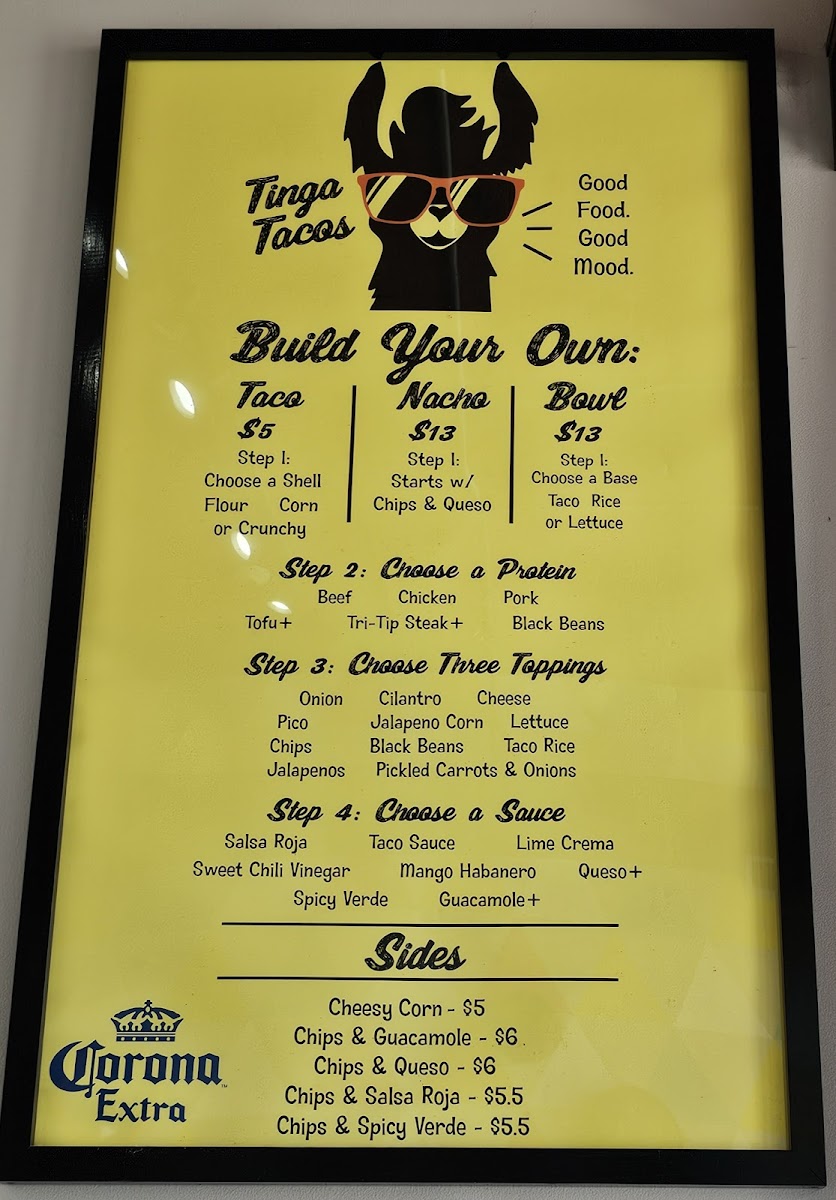 Tinga
Tacos
Good
Food.
Good
Mood.
Build Your Own:
Taco
$5
Step 1:
Choose a Shell
Flour Corn
or Crunchy
Nacho
$13
Step 1:
Starts w/
Chips & Queso
Bowl
$13
Step 1:
Choose a Base
Taco Rice
or Lettuce
Step 2: Choose a Protein
Beef Chicken Pork
Tofu+ Tri-Tip Steak+ Black Beans
Step 3: Choose Three Toppings
Onion Cilantro Cheese
Pico Jalapeno Corn Lettuce
Chips Black Beans Taco Rice
Jalapenos Pickled Carrots & Onions
Step 4: Choose a Sauce
Salsa Roja Taco Sauce Lime Crema
Sweet Chili Vinegar Mango Habanero Queso+
Spicy Verde Guacamole+
Sides
Cheesy Corn - $5
Chips & Guacamole - $6
Chips & Queso - $6
Chips & Salsa Roja - $5.5
Chips & Spicy Verde - $5.5
Corona
Extra